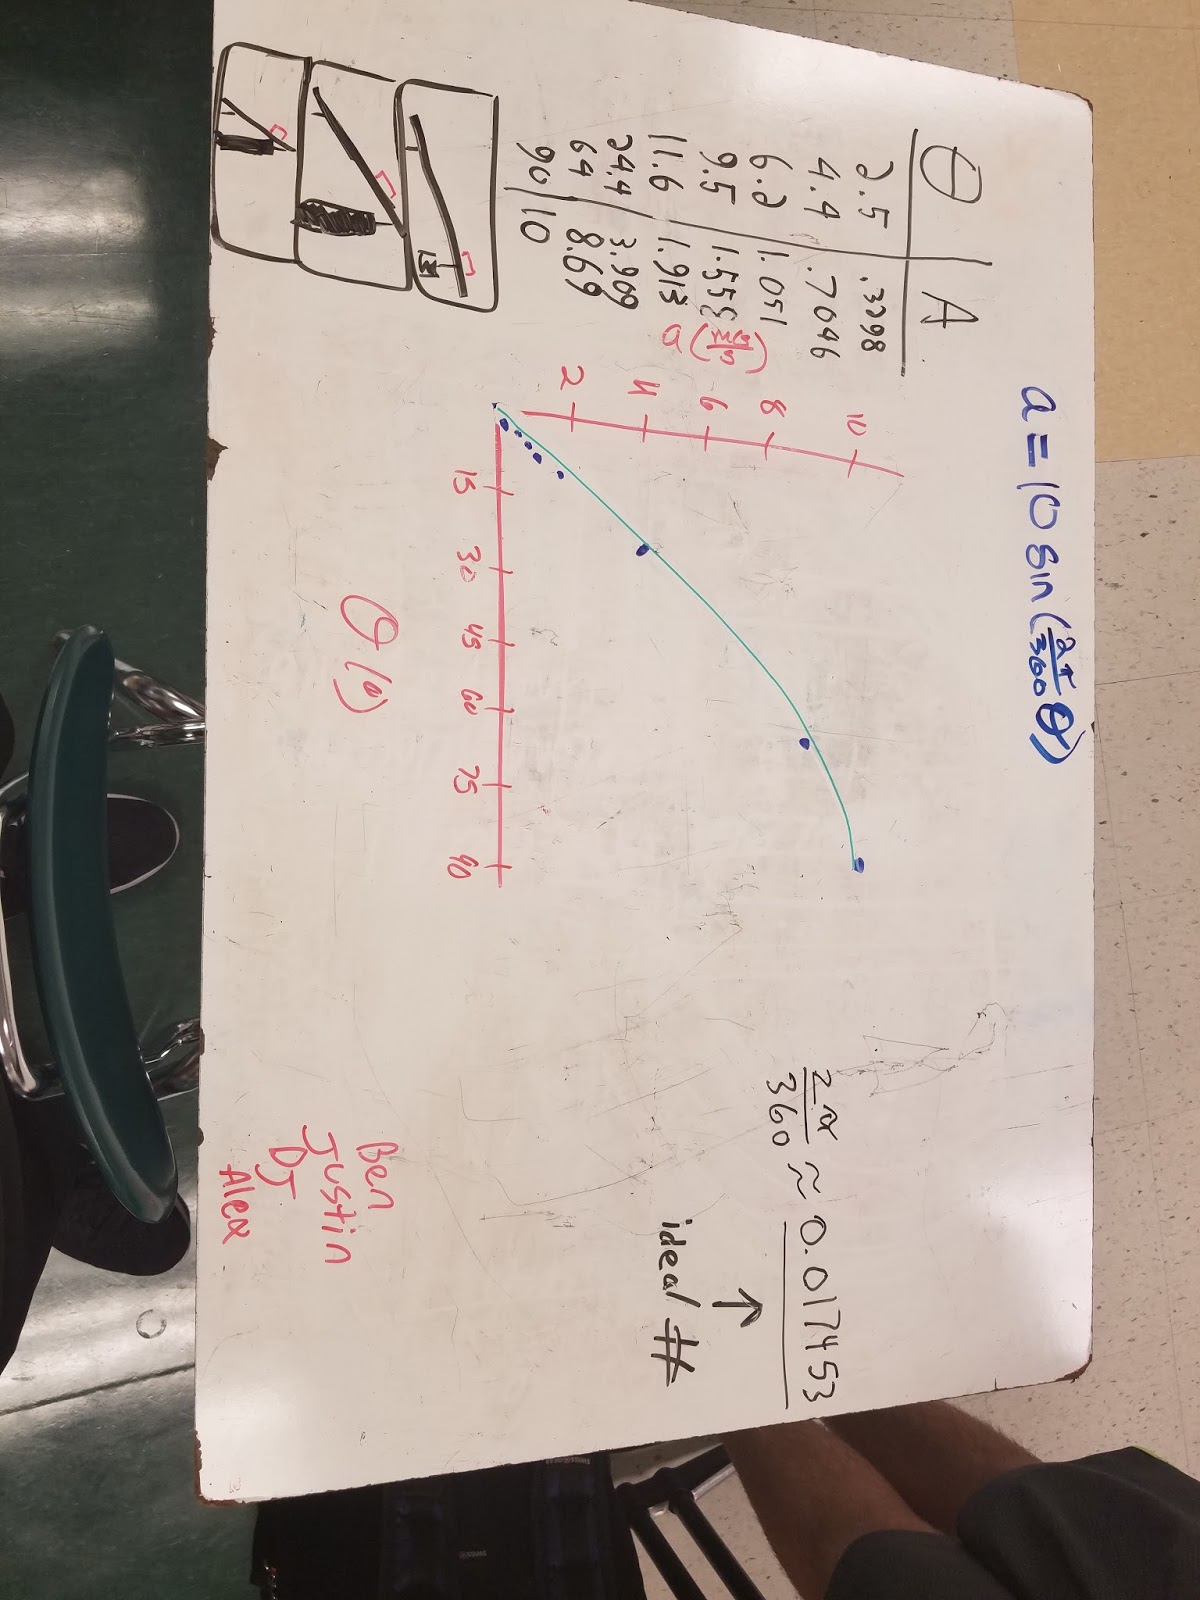 a = 10 sin(2π/360 θ)
θ | A
2.5 | .3298
4.4 | .7046
6.2 | 1.051
9.5 | 1.55
11.6 | 1.913
24.4 | 3.909
64 | 8.69
90 | 10
a (m/s/s)
10
8
6
4
2
15 30 45 60 75 90
θ (°)
2π/360 ≈ 0.017453
↑
ideal #
Ben
Justin
DJ
Alex